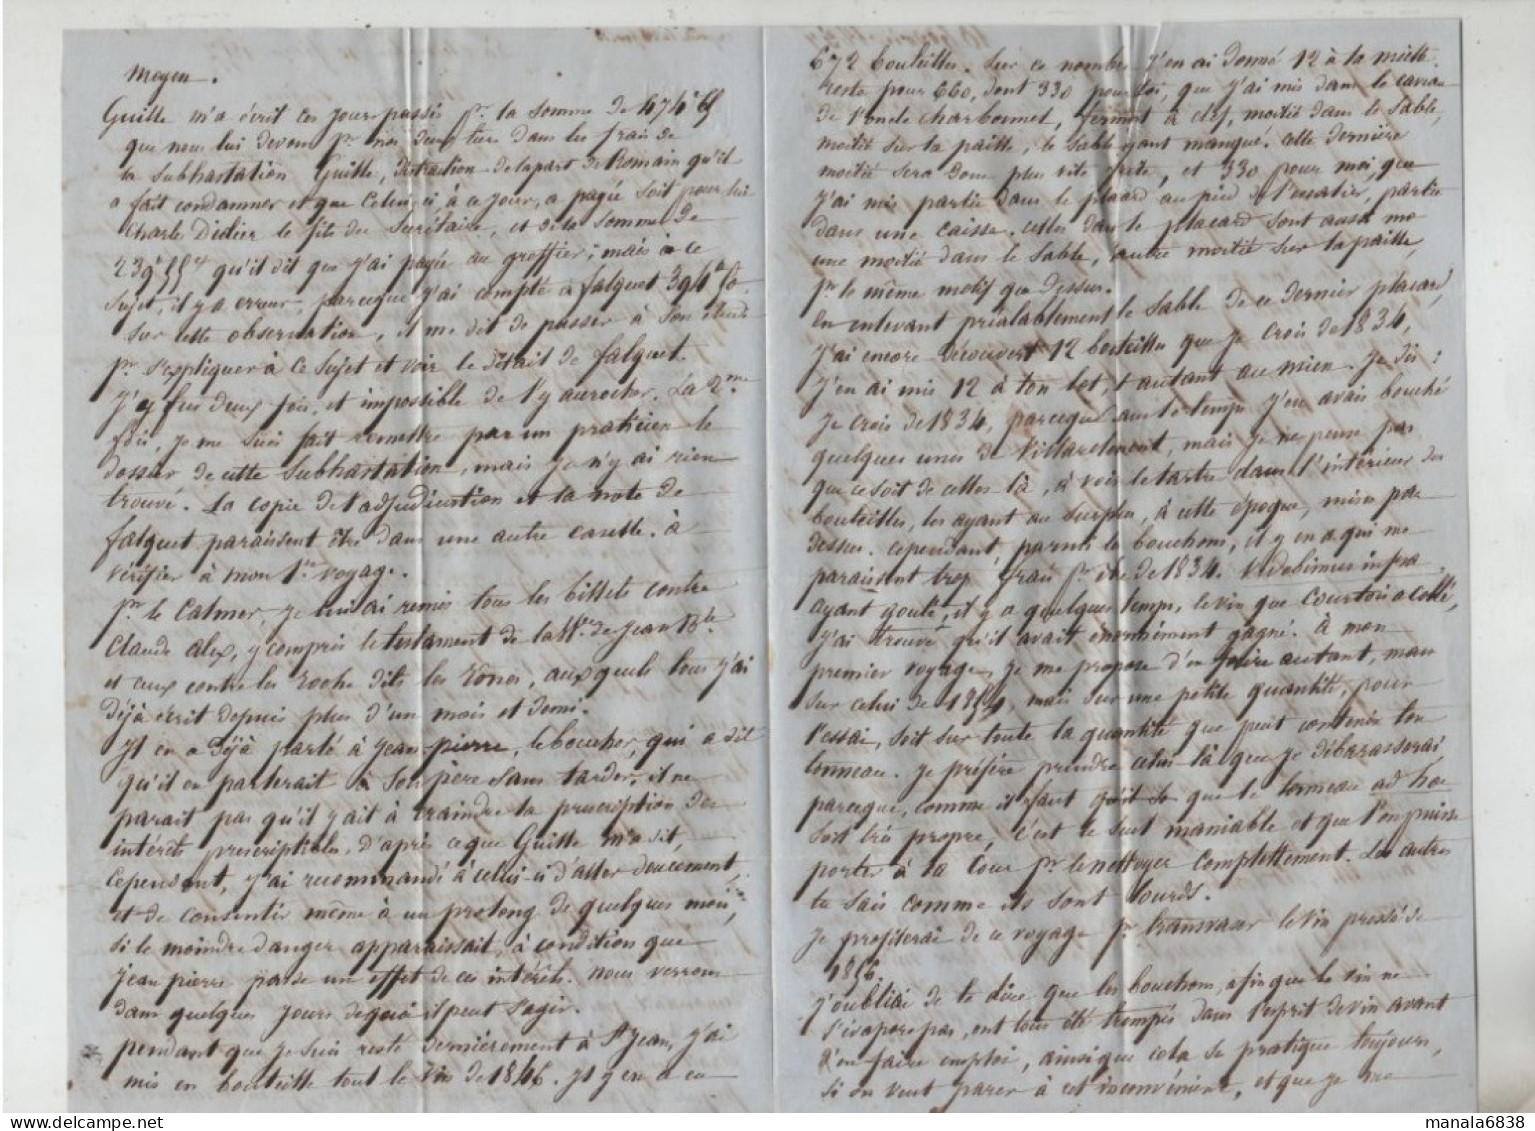 moyen.
Guille m'a écrit ces jours passés pr. la somme de 474
que nous lui devons pr. nos deux tiers dans les frais de
la subhastation Guille, de la part de Romain qu'il
a fait condamner et que Celui-ci, à ce jour, a payée soit pour lui
Charles Didier le fils du Secrétaire, et de la somme de
239 qu'il dit que j'ai payée au greffier; mais à ce
sujet, il y a erreur, parceque j'ai compté à falquet 394
sur cette observation, il me dit de passer à son étude
pr. s'expliquer à ce sujet et voir le détail de falquet.
J'y fus deux fois, et impossible de l'y accrocher. La 2me
fois, je me suis fait remettre par un praticien le
dossier de cette subhastation, mais je n'y ai rien
trouvé. La copie de l'adjudication et la note de
falquet paraissent être dans une autre case. à
vérifier à mon 1er voyage.
pr. le Calmer, je lui ai remis tous les billets contre
Claude alex, y compris le testament de la de Jean Bte
et ceux contre les roche dits les, auxquels tous j'ai
déjà écrit depuis plus d'un mois et demi.
Il en a déjà parlé à Jean pierre, le boucher, qui a dit
qu'il en parlerait à son père sans tarder, il ne
parait pas qu'il y ait à craindre la prescription des
intérêts prescriptibles, d'après ce que Guille m'a dit,
cependant, j'ai recommandé à celui-ci d'aller doucement,
et de consentir même à un prolong de quelques mois,
si le moindre danger apparaissait, à condition que
Jean pierre passe un effet de ces intérêts. nous verrons
dans quelques jours de quoi il peut s'agir.
pendant que je suis resté dernièrement à St Jean, j'ai
mis en bouteille tout le vin de 1846. Il y en a eu
672 bouteilles. Sur ce nombre j'en ai donné 12 à la
reste pour 660, dont 330 pour toi, que j'ai mis dans le caveau
de l'oncle charbonnel, fermant à clef, moitié dans le sable,
moitié sur la paille, le sable ayant manqué. cette dernière
moitié sera donc plus vite prête, et 330 pour moi, que
j'ai mis partie dans le placard au pied de l'escalier, partie
dans une caisse. celles dans le placard sont aussi
une moitié dans le sable, autre moitié sur la paille,
pr. le même motif que dessus.
En enlevant préalablement le sable de ce dernier placard,
j'ai encore découvert 12 bouteilles que je crois de 1834,
j'en ai mis 12 à ton lot, autant au mien. Je dis:
Je crois de 1834, parceque dans le temps j'en avais bouché
quelques unes de Villarclément, mais je ne pense pas
que ce soit de celles là, à voir le tartre dans l'intérieur des
bouteilles, les ayant au surplus, à cette époque, mises par
dessus. cependant parmi les bouchons, il y en a qui me
paraissent trop frais pr. être de 1834.
ayant goûté, il y a quelques temps, le vin que Courtois a collé,
j'ai trouvé qu'il avait énormément gagné. à mon
premier voyage, je me propose d'en faire autant, mais
sur celui de 1854, mais sur une petite quantité, pour
l'essai, soit sur toute la quantité que peut contenir ton
tonneau. Je préfère prendre celui-là que je débarasserai
parceque, comme il faut que le tonneau ad hoc
soit très propre, c'est le seul maniable et que l'on puisse
porter à la cour pr. le nettoyer complettement. Les autres
tu sais comme ils sont lourds.
Je profiterai de ce voyage pr. transvaser le vin pressé de
1856.
j'oubliai de te dire que les bouchons, afin que le vin ne
s'évapore pas, ont tous été trempés dans l'esprit de vin avant
d'en faire emploi, ainsi que cela se pratique toujours,
si on veut parer à cet inconvénient, et que je me
manala6838